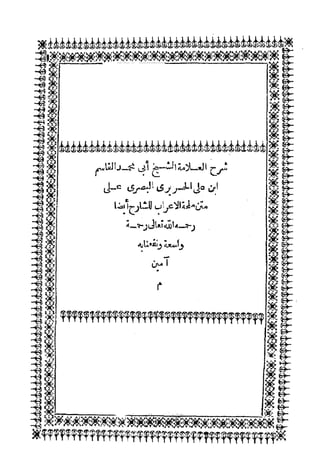 شرح العلامة الشيخ أبي محمد القاسم
ابن على الحريرى البصرى على
متن ملحة الاعراب للشارح أيضا
رحمه الله تعالى رحمة
واسعة ونفعنا به
آمين
م